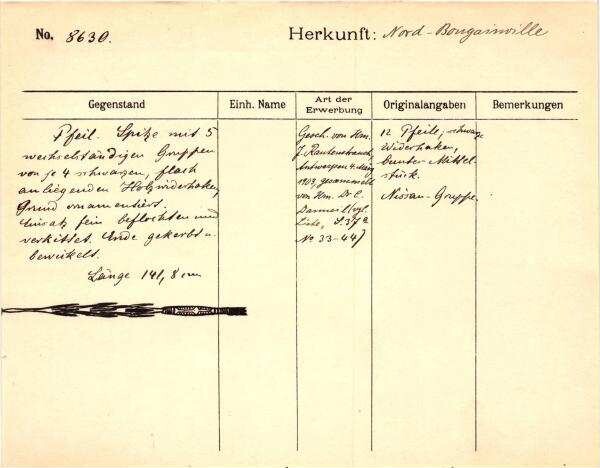 No. 8630.
Herkunft: Nord-Bougainville
Gegenstand
Einh. Name
Art der Erwerbung
Originalangaben
Bemerkungen
Pfeil. Spitze mit 5
wechselständigen Gruppen
von je 4 schwarzen, flach
anliegenden Holzwiderhaken,
Grund ornamentiert.
Einsatz fein beflochten und
verkittet. Ende gekerbt u.
bewickelt.
Länge 141,8 cm
Gesch. von Hrn.
J. Rautenstrauch,
Antwerpen 4. März
1909, gesammelt
von Hrn. Dr. E.
(vgl.
Liste, S. 37
No 33-44)
12 Pfeile, schwarze
Widerhaken,
bunter Mittel
stück.
Nissan-Gruppe.